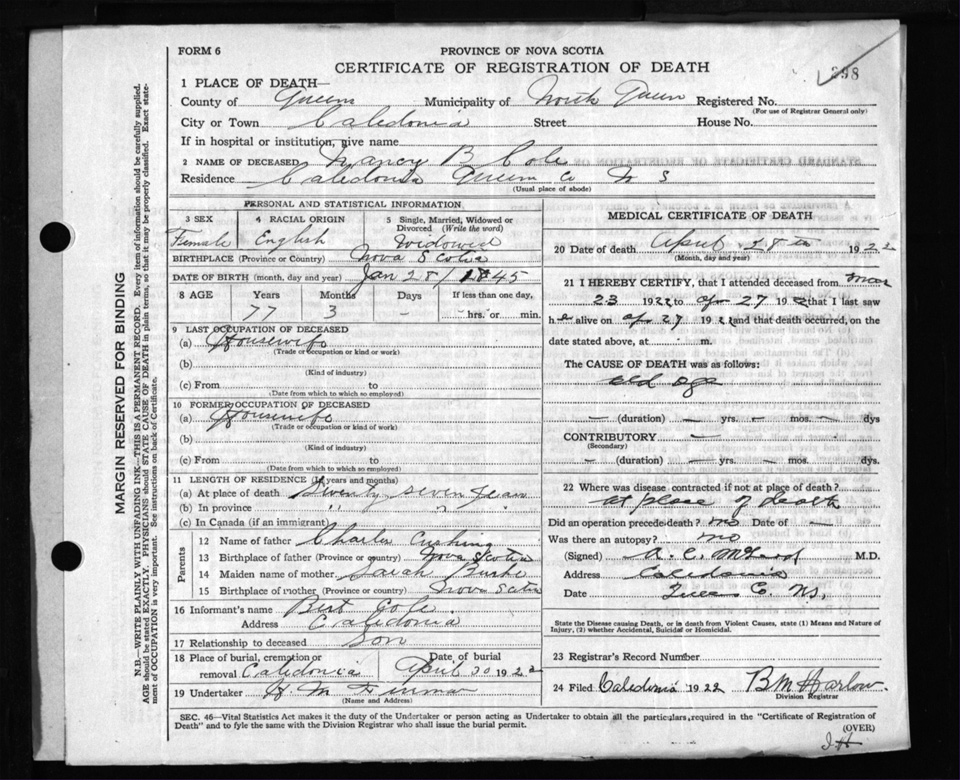 FORM 6
PROVINCE OF NOVA SCOTIA
CERTIFICATE OF REGISTRATION OF DEATH
398
1 PLACE OF DEATH—
County of Queens Municipality of North Queen Registered No.
(For use of Registrar General only)
City or Town Caledonia Street House No.
If in hospital or institution, give name
2 NAME OF DECEASED Nancy B Cole
Residence Caledonia Queens Co N S
(Usual place of abode)
PERSONAL AND STATISTICAL INFORMATION
3 SEX 4 RACIAL ORIGIN 5 Single, Married, Widowed or Divorced (Write the word)
Female English Widowed
BIRTHPLACE (Province or Country) Nova Scotia
DATE OF BIRTH (month, day and year) Jan 28/1845
8 AGE Years Months Days If less than one day,
77 3 - hrs. or min.
9 LAST OCCUPATION OF DECEASED
(a) Housewife
(Trade or occupation or kind or work)
(b)
(Kind of industry)
(c) From to
(Date from which to which so employed)
10 FORMER OCCUPATION OF DECEASED
(a) Housewife
(Trade or occupation or kind of work)
(b)
(Kind of industry)
(c) From to
(Date from which to which so employed)
11 LENGTH OF RESIDENCE (in years and months)
(a) At place of death Seventy seven years
(b) In province " " "
(c) In Canada (if an immigrant)
Parents
12 Name of father Charles Cushing
13 Birthplace of father (Province or country) Nova Scotia
14 Maiden name of mother Sarah
15 Birthplace of mother (Province or country) Nova Scotia
16 Informant's name Bert Cole
Address Caledonia
17 Relationship to deceased Son
18 Place of burial, cremation or removal Caledonia Date of burial April 30 1922
19 Undertaker H M
(Name and Address)
MEDICAL CERTIFICATE OF DEATH
20 Date of death April 28th 1922
(Month, day and year)
21 I HEREBY CERTIFY, that I attended deceased from Mar
23 1922 to Apr 27 1922 that I last saw
her alive on Apr 27 1922 and that death occurred, on the
date stated above, at m.
The CAUSE OF DEATH was as follows:
old age
— (duration) — yrs. — mos. — dys
CONTRIBUTORY —
(Secondary)
— (duration) — yrs. — mos. — dys.
22 Where was disease contracted if not at place of death?
at place of death
Did an operation precede death? no Date of —
Was there an autopsy? no
(Signed) M.D.
Address Caledonia
Date Queens Co. N.S.
State the Disease causing Death, or in death from Violent Causes, state (1) Means and Nature of Injury, (2) whether Accidental, Suicidal or Homicidal.
23 Registrar's Record Number
24 Filed Caledonia 1922 B M Harlow
Division Registrar
SEC. 46—Vital Statistics Act makes it the duty of the Undertaker or person acting as Undertaker to obtain all the particulars required in the "Certificate of Registration of
Death" and to fyle the same with the Division Registrar who shall issue the burial permit.
(OVER)
MARGIN RESERVED FOR BINDING
N.B.—WRITE PLAINLY WITH UNFADING INK—THIS IS A PERMANENT RECORD. Every item of information should be carefully supplied.
AGE should be stated EXACTLY. PHYSICIANS should STATE CAUSE OF DEATH in plain terms, so that it may be properly classified. Exact state-
ment of OCCUPATION is very important. See instructions on back of Certificate.